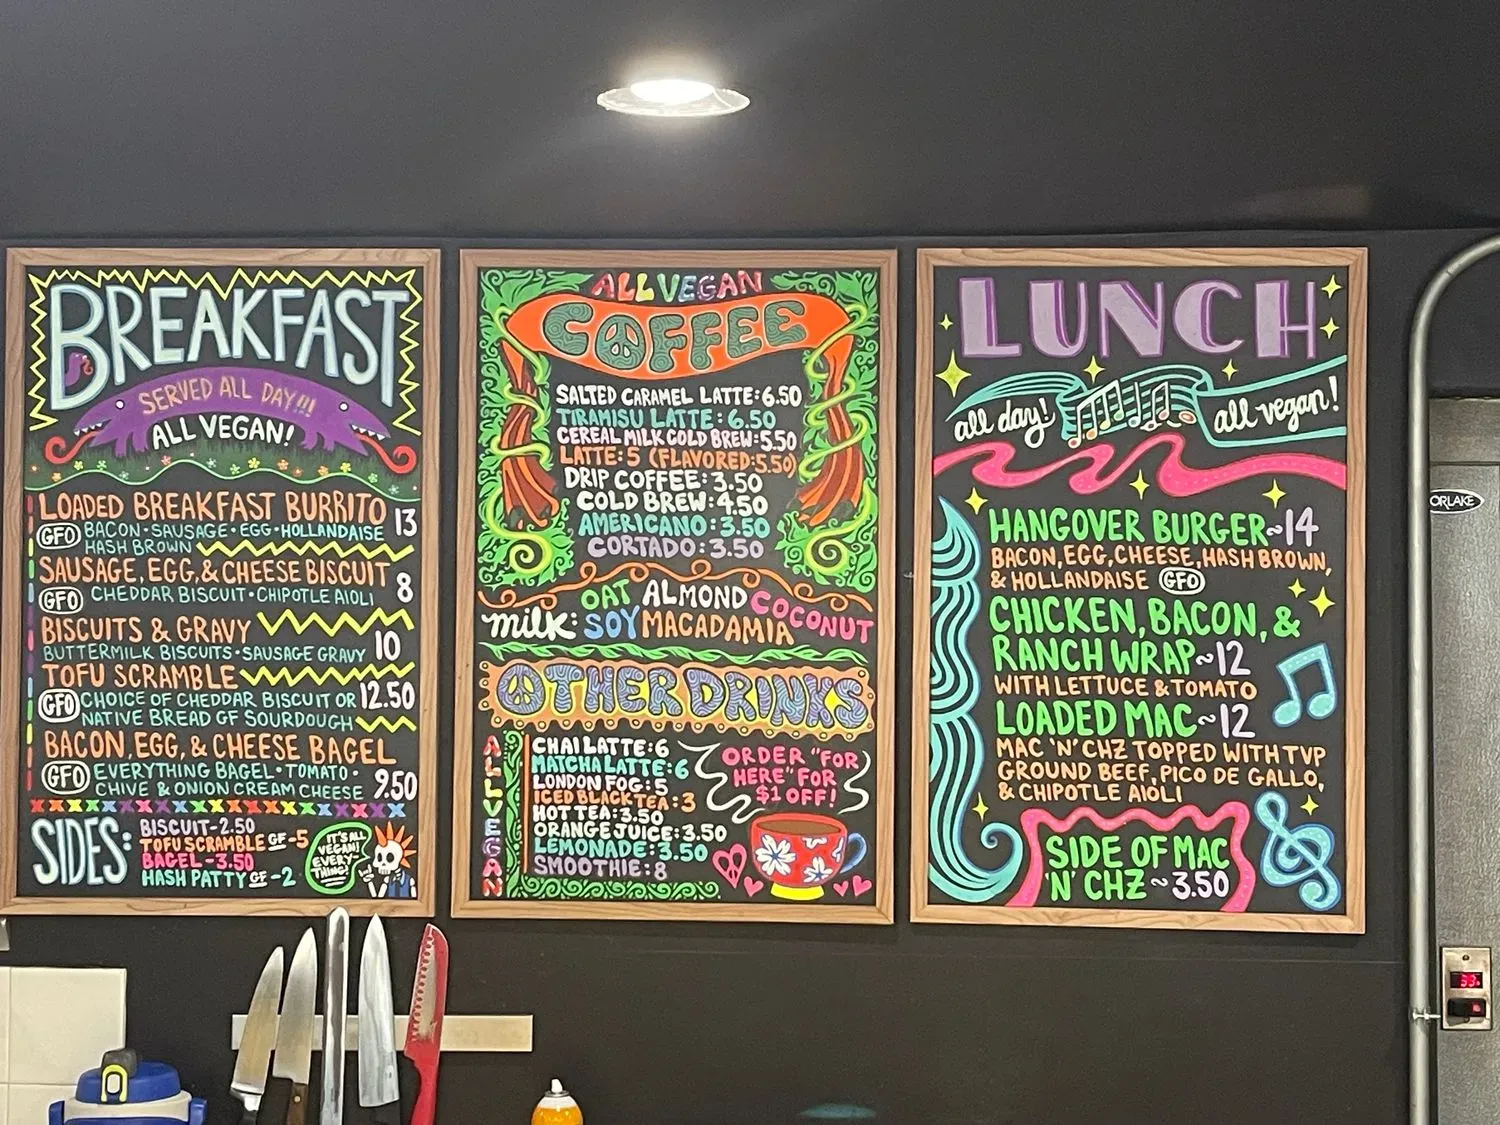 BREAKFAST
SERVED ALL DAY!!!
ALL VEGAN!
LOADED BREAKFAST BURRITO 13
GFO BACON·SAUSAGE·EGG·HOLLANDAISE
HASH BROWN
SAUSAGE, EGG, & CHEESE BISCUIT 8
GFO CHEDDAR BISCUIT·CHIPOTLE AIOLI
BISCUITS & GRAVY 10
BUTTERMILK BISCUITS·SAUSAGE GRAVY
TOFU SCRAMBLE 12.50
GFO CHOICE OF CHEDDAR BISCUIT OR
NATIVE BREAD GF SOURDOUGH
BACON, EGG, & CHEESE BAGEL
GFO EVERYTHING BAGEL·TOMATO·
CHIVE & ONION CREAM CHEESE 9.50
SIDES:
BISCUIT-2.50
TOFU SCRAMBLE GF -5
BAGEL-3.50
HASH PATTY GF -2
IT'S ALL
VEGAN!
EVERY-
THING!
ALL VEGAN
COFFEE
SALTED CARAMEL LATTE:6.50
TIRAMISU LATTE:6.50
CEREAL MILK COLD BREW:5.50
LATTE:5 (FLAVORED:5.50)
DRIP COFFEE:3.50
COLD BREW:4.50
AMERICANO:3.50
CORTADO:3.50
milk: OAT ALMOND COCONUT
SOY MACADAMIA
OTHER DRINKS
ALL VEGAN
CHAI LATTE:6
MATCHA LATTE:6
LONDON FOG:5
ICED BLACK TEA:3
HOT TEA:3.50
ORANGE JUICE:3.50
LEMONADE:3.50
SMOOTHIE:8
ORDER "FOR
HERE" FOR
$1 OFF!
LUNCH
all day! all vegan!
HANGOVER BURGER~14
BACON, EGG, CHEESE, HASH BROWN,
& HOLLANDAISE GFO
CHICKEN, BACON, &
RANCH WRAP~12
WITH LETTUCE & TOMATO
LOADED MAC~12
MAC 'N' CHZ TOPPED WITH TVP
GROUND BEEF, PICO DE GALLO,
& CHIPOTLE AIOLI
SIDE OF MAC
'N' CHZ ~3.50
ORLAKE